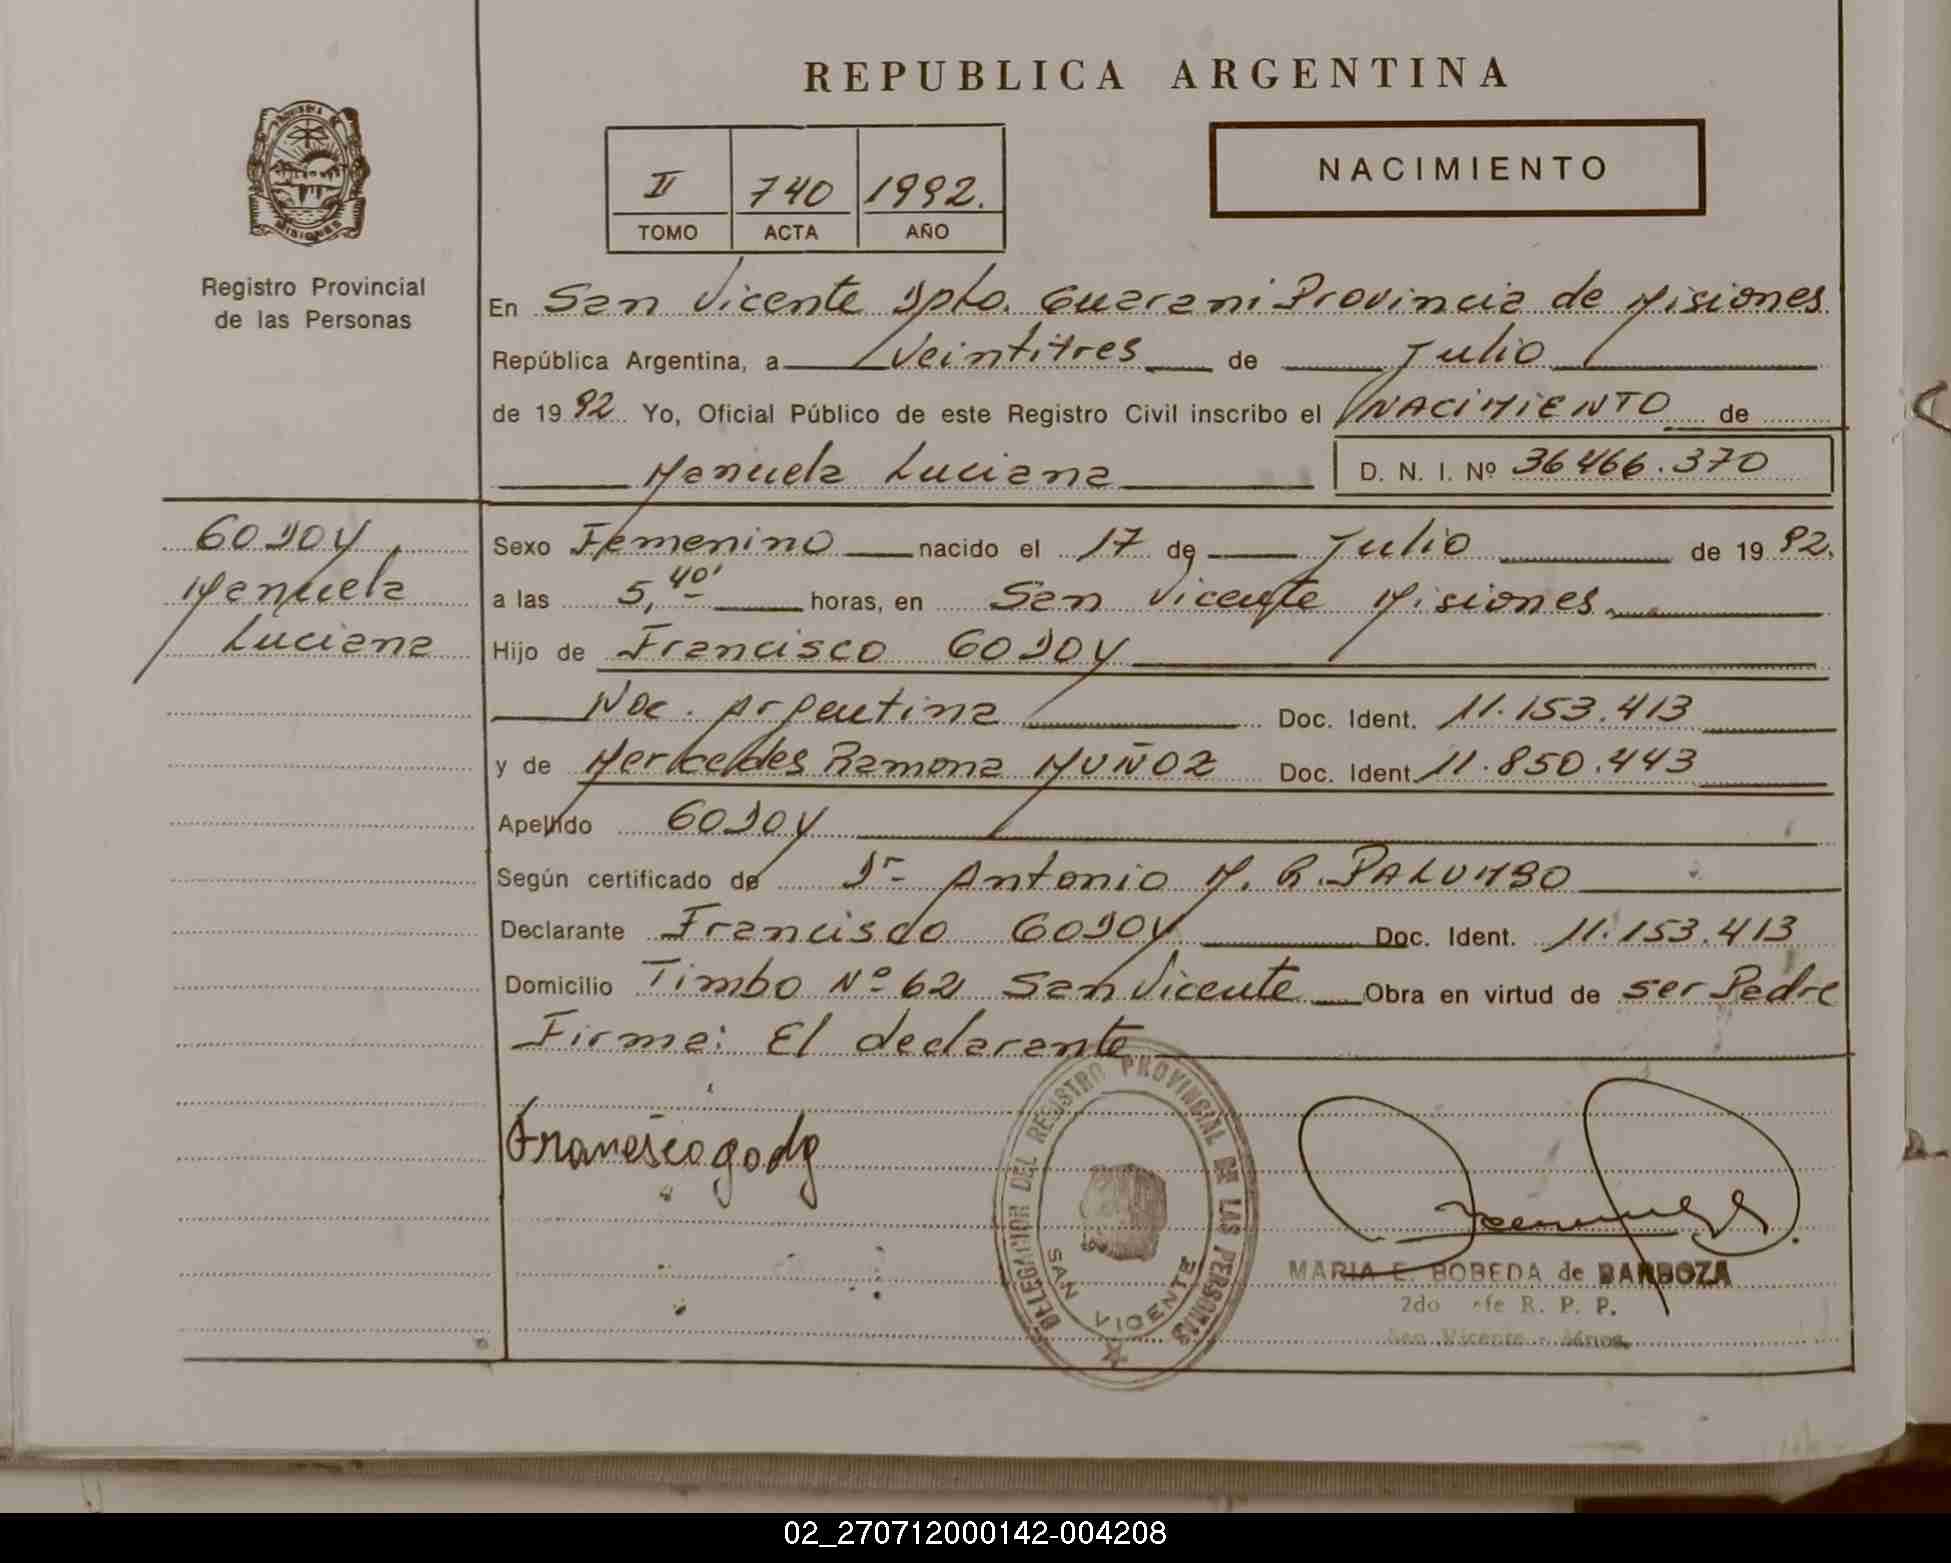 REPUBLICA ARGENTINA
II 740 1992.
TOMO ACTA AÑO
NACIMIENTO
MISIONES
Registro Provincial
de las Personas
En San Vicente Dpto. Guarani Provincia de Misiones
República Argentina, a Veintitres de Julio
de 1992 Yo, Oficial Público de este Registro Civil inscribo el NACIMIENTO de
Manuela Luciana D. N. I. Nº 36466.370
GODOY
Manuela
Luciana
Sexo Femenino nacido el 17 de Julio de 1992.
a las 5,40' horas, en San Vicente Misiones
Hijo de Francisco GODOY
Nac. Argentina Doc. Ident. 11.153.413
y de Mercedes Ramona MUÑOZ Doc. Ident. 11.850.443
Apellido GODOY
Según certificado de Dr Antonio M. R. PALUMBO
Declarante Francisco GODOY Doc. Ident. 11.153.413
Domicilio Timbo Nº 62 San Vicente Obra en virtud de ser Padre
Firma: El declarante
Francisco godoy
DELEGACION DEL REGISTRO PROVINCIAL DE LAS PERSONAS
SAN VICENTE
MARIA E. BOBEDA de BARBOZA
2do fe R. P. P.
San Vicente - Mnes.
02_270712000142-004208